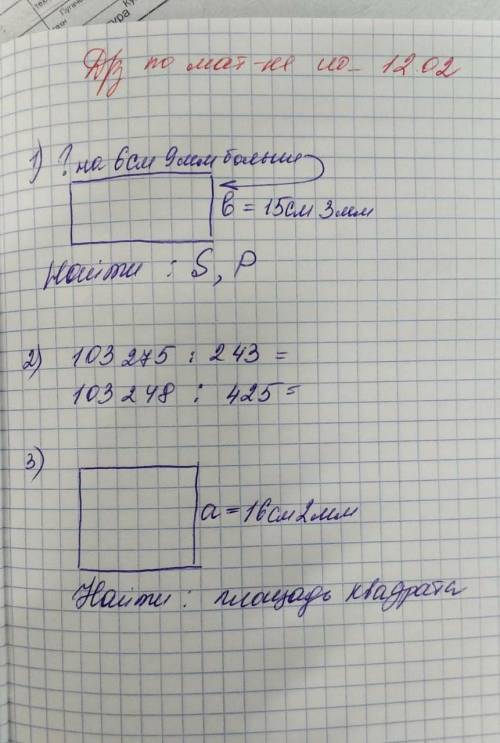 Д/з по мат-ке на 12.02
1) ? на 6см 9мм больше
в = 15см 3мм
Найти : S, P
2) 103 275 : 243 =
103 248 : 425 =
3)
а = 16см 2мм
Найти : площадь квадрата